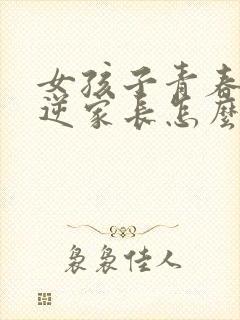 女孩子青春
逆家长怎麽
袅袅佳人